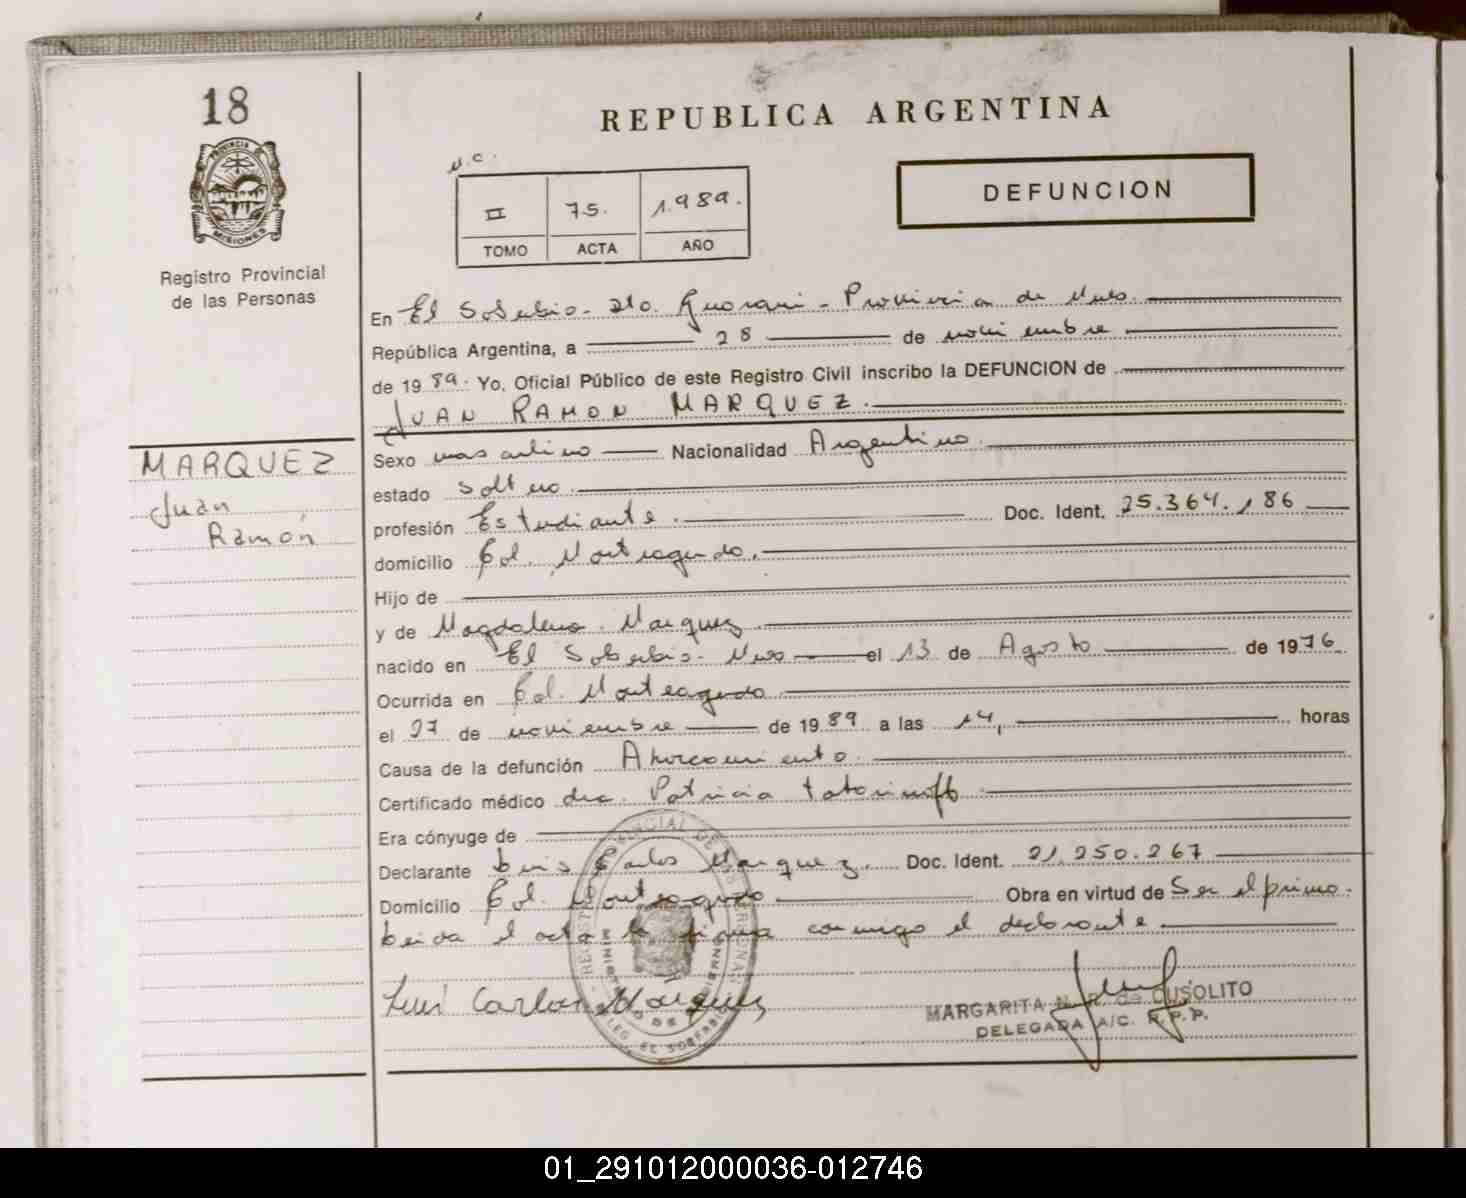 18
PROVINCIA DE
MISIONES
Registro Provincial
de las Personas
MARQUEZ
Juan
Ramón
REPUBLICA ARGENTINA
II 75. 1.989.
TOMO ACTA AÑO
DEFUNCION
En El Soberbio - Dto. Guarani - Provincia de Mnes.
República Argentina, a 28 de noviembre
de 1989. Yo, Oficial Público de este Registro Civil inscribo la DEFUNCION de
JUAN RAMON MARQUEZ.
Sexo masculino Nacionalidad Argentino.
estado soltero.
profesión Estudiante. Doc. Ident. 25.364.186
domicilio Col. Monteagudo.
Hijo de
y de Magdalena Marquez
nacido en El Soberbio - Mnes el 13 de Agosto de 1976.
Ocurrida en Col. Monteagudo
el 27 de noviembre de 1989 a las 14, horas
Causa de la defunción Ahorcamiento.
Certificado médico dra. Patricia
Era cónyuge de
Declarante Luis Carlos Marquez. Doc. Ident. 21.250.267
Domicilio Col. Monteagudo Obra en virtud de Ser el primo.
Leida el acta la firma conmigo el declarante.
Luis Carlos Marquez
MARGARITA N. R. de CUSOLITO
DELEGADA A/C. R.P.P.
01_291012000036-012746